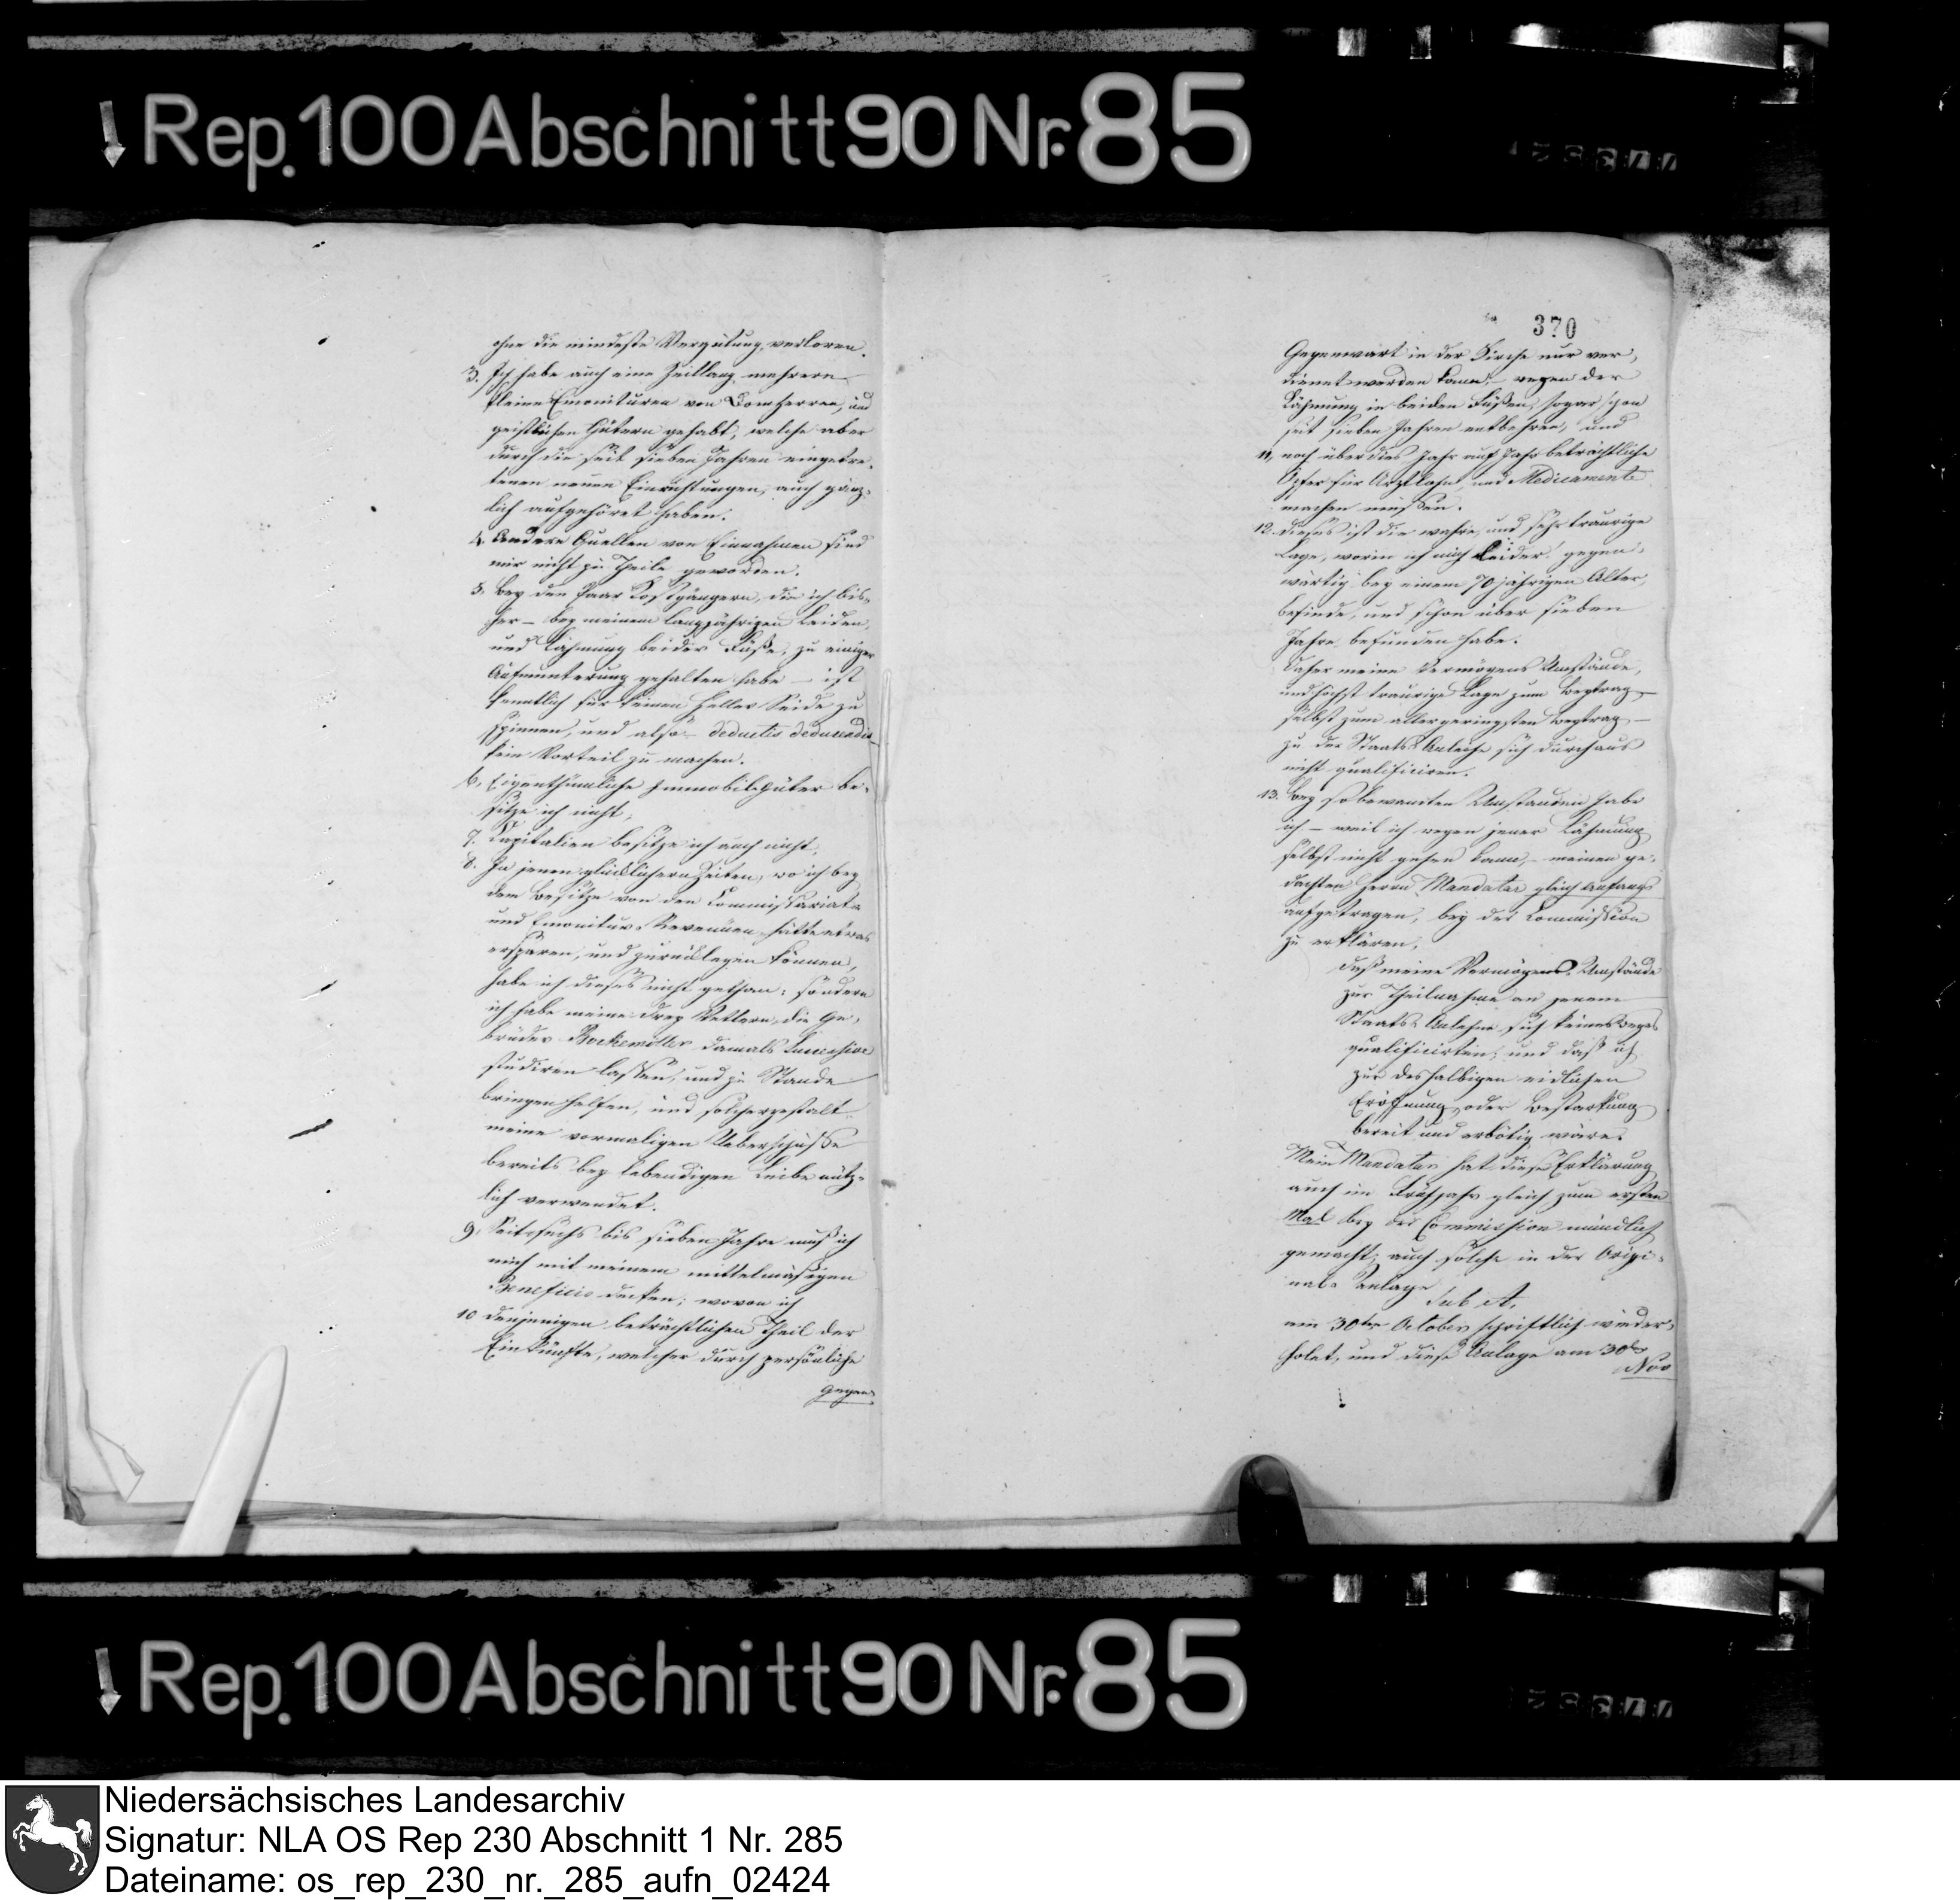 Rep. 100 Abschnitt 90 Nr. 85
ohne die mindeste Vergütung, verloren.
3. Ich habe auch eine Zeitlang mehrere
kleine Emonituren von Domherren, und
geistlichen Gütern gehabt, welche aber
durch die seit sieben Jahren eingetre-
tenen neuen Einrichtungen, auch gänz-
lich aufgehöret haben.
4. Andere Quellen von Einnahmen sind
mir nicht zu Theile geworden.
5. Bey den Paar Kostgängern, die ich bis-
her – bey meinem langjährigen Leiden,
und Lähmung beider Füße, zu einiger
Aufmunterung gehalten habe – ist
kenntlich für keinen Heller Seide zu
spinnen, und also – deductis deducendis
kein Vorteil zu machen.
6. Eigenthümliche Immobilgüter be-
sitze ich nicht,
7. Capitalien besitze ich auch nicht.
8. In jenen glücklichern Zeiten, wo ich bey
dem Besitze von den Commissariats
und Emonitur-Revenüen, hätte etwas
ersparen, und zurücklegen können,
habe ich dieses nicht gethan: sondern
ich habe meine drey Vettern, die Ge-
brüder Bockemöller damals successive
studiren lassen, und zu Stande
bringen helfen, und solchergestalt
meine vormaligen Ueberschüsse
bereits bey lebendigen Leibe nütz-
lich verwendet.
9. Seit sechs bis sieben Jahre muß ich
mich mit meinem mittelmäßigen
Beneficio decken; wovon ich
10 denjenigen beträchtlichen Theil der
Einkünfte, welcher durch persönliche
Gegen-
370
Gegenwart in der Kirche nur ver-
dienet werden kann, – wegen der
Lähmung in beiden Füßen, sogar schon
seit sieben Jahren entbehren, und
11, noch über dies Jahr auf Jahr beträchtliche
Opfer für Arztlohn und Medicamente
machen müssen.
12. Dieses ist die wahre, und sehr traurige
Lage, worin ich mich leider! gegen-
wärtig bey einem 70 jährigen Alter,
befinde, und schon über sieben
Jahre befunden habe.
Daher meine Vermögens Umstände,
und höchst traurige Lage zum Beytrag –
selbst zum allergeringsten Beytrag –
zu der Staats Anleihe sich durchaus
nicht qualificiren.
13. Bey so bewandten Umständen habe
ich – weil ich wegen jener Lähmung
selbst nicht gehen kann, – meinen ge-
dachten Herrn Mandatar gleich anfangs
aufgetragen, bey der Commission
zu erklären,
daß meine Vermögens-Umstände
zur Theilnahme an jenem
Staats Anlehne sich keinesweges
qualificirten, und daß ich
zur deshalbigen eidlichen
Eröffnung oder Bestarkung
bereit und erbötig wäre.
Mein Mandatar hat diese Erklärung
auch im Frühjahr gleich zum ersten
Mal bey der Commission mündlich
gemacht; auch solche in der Origi-
nal-Anlage
sub A,
am 30ten October schriftlich wieder-
holet, und diese Anlage am 30ten
Nov
Rep. 100 Abschnitt 90 Nr. 85
Niedersächsisches Landesarchiv
Signatur: NLA OS Rep 230 Abschnitt 1 Nr. 285
Dateiname: os_rep_230_nr._285_aufn_02424